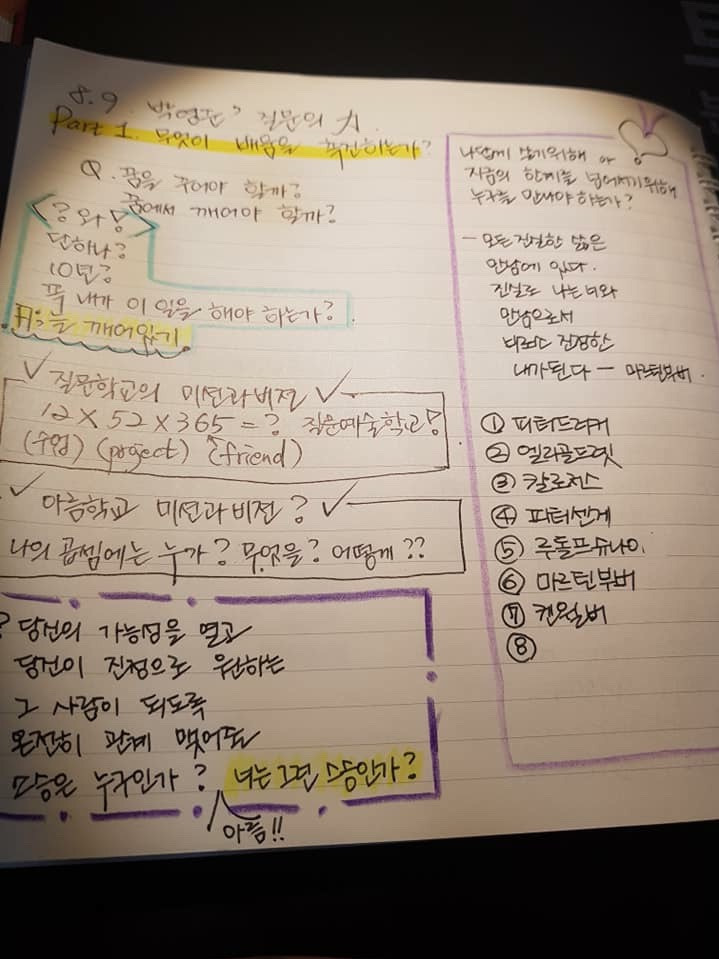 8.9. 박영준, 질문의 力
Part 1. 무엇이 배움을 촉진하는가?
Q. 꿈을 꾸어야 할까?
꿈에서 깨어야 할까?
<?와!>
단하나?
10년?
꼭 내가 이 일을 해야 하는가?
A: 늘 깨어있기
✓ 질문학교의 미션과 비전 ✓
12 X 52 X 365 = ? 질문예술학교!
(수업) (project) (friend)
✓ 아름학교 미션과 비전? ✓
나의 곱셈에는 누가? 무엇을? 어떻게??
? 당신의 가능성을 열고
당신이 진정으로 원하는
그 사람이 되도록
온전히 관계 맺어줄
스승은 누구인가? 너는 그런 스승인가?
아름!!
나답게 살기위해
지금의 한계를 넘어서기위해
누구를 만나야 하는가?
- 모든 진실한 삶은
만남에 있다.
진실로 나는 너와
만남으로서
비로소 진정한
내가 된다 - 마르틴부버.
① 피터드러커
② 엘리골드렛
③ 칼로저스
④ 피터센게
⑤ 루돌프슈타이.
⑥ 마르틴부버
⑦ 켄윌버
⑧